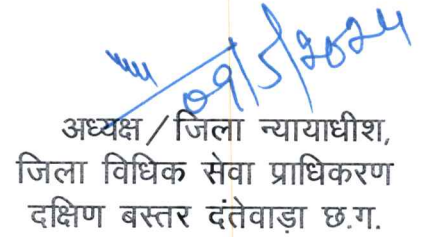 09/5/2025
अध्यक्ष / जिला न्यायाधीश,
जिला विधिक सेवा प्राधिकरण
दक्षिण बस्तर दंतेवाड़ा छ.ग.